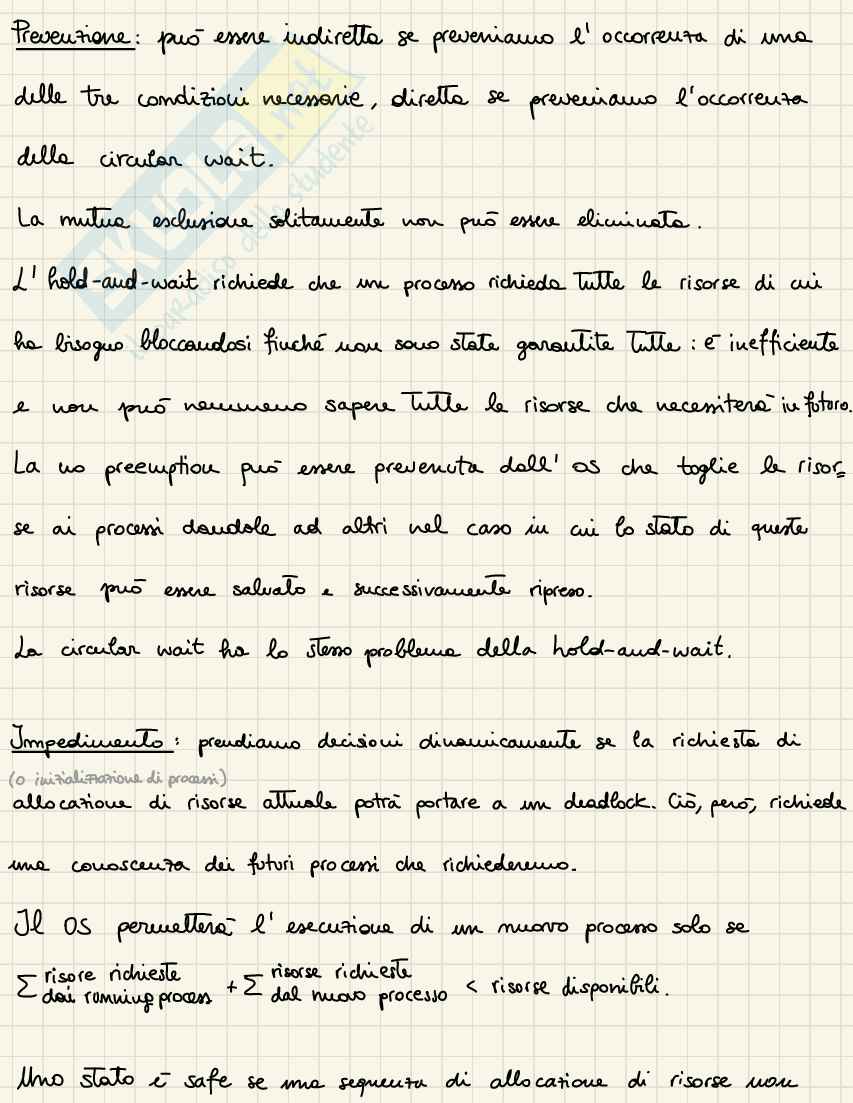 Prevenzione: può essere indiretta se preveniamo l'occorrenza di una
delle tre condizioni necessarie, diretta se preveniamo l'occorrenza
della circular wait.
La mutua esclusione solitamente non può essere eliminata.
L'hold-and-wait richiede che un processo richieda tutte le risorse di cui
ha bisogno bloccandosi finché non sono state garantite tutte: è inefficiente
e non può nemmeno sapere tutte le risorse che necessiterà in futuro.
La no preemption può essere prevenuta dall'OS che toglie le risor=
se ai processi dandole ad altri nel caso in cui lo stato di queste
risorse può essere salvato e successivamente ripreso.
La circular wait ha lo stesso problema della hold-and-wait.
Impedimento: prendiamo decisioni dinamicamente se la richiesta di
(o inizializzazione di processi)
allocazione di risorse attuale potrà portare a un deadlock. Ciò, però, richiede
una conoscenza dei futuri processi che richiederemo.
Il OS permetterà l'esecuzione di un nuovo processo solo se
∑ risore richieste dai running process + ∑ risorse richieste dal nuovo processo < risorse disponibili.
Uno stato è safe se una sequenza di allocazione di risorse non
SKUOLA.net
il paradiso dello studente